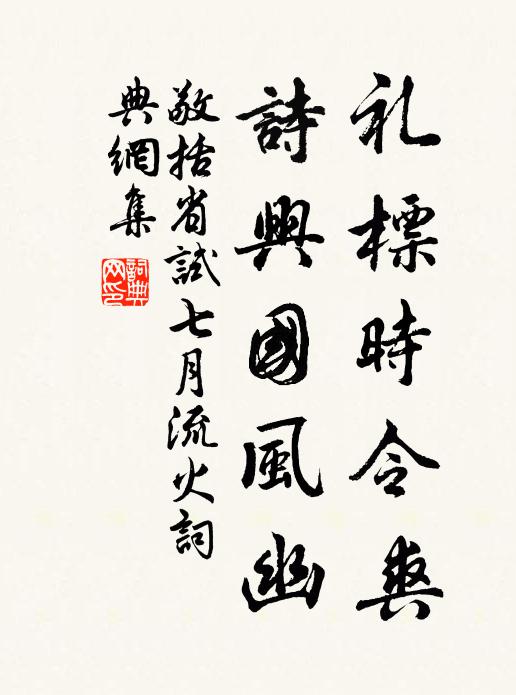 礼標時令爽
詩興國風幽
敬括省試七月流火詞
典網集
詞典网印